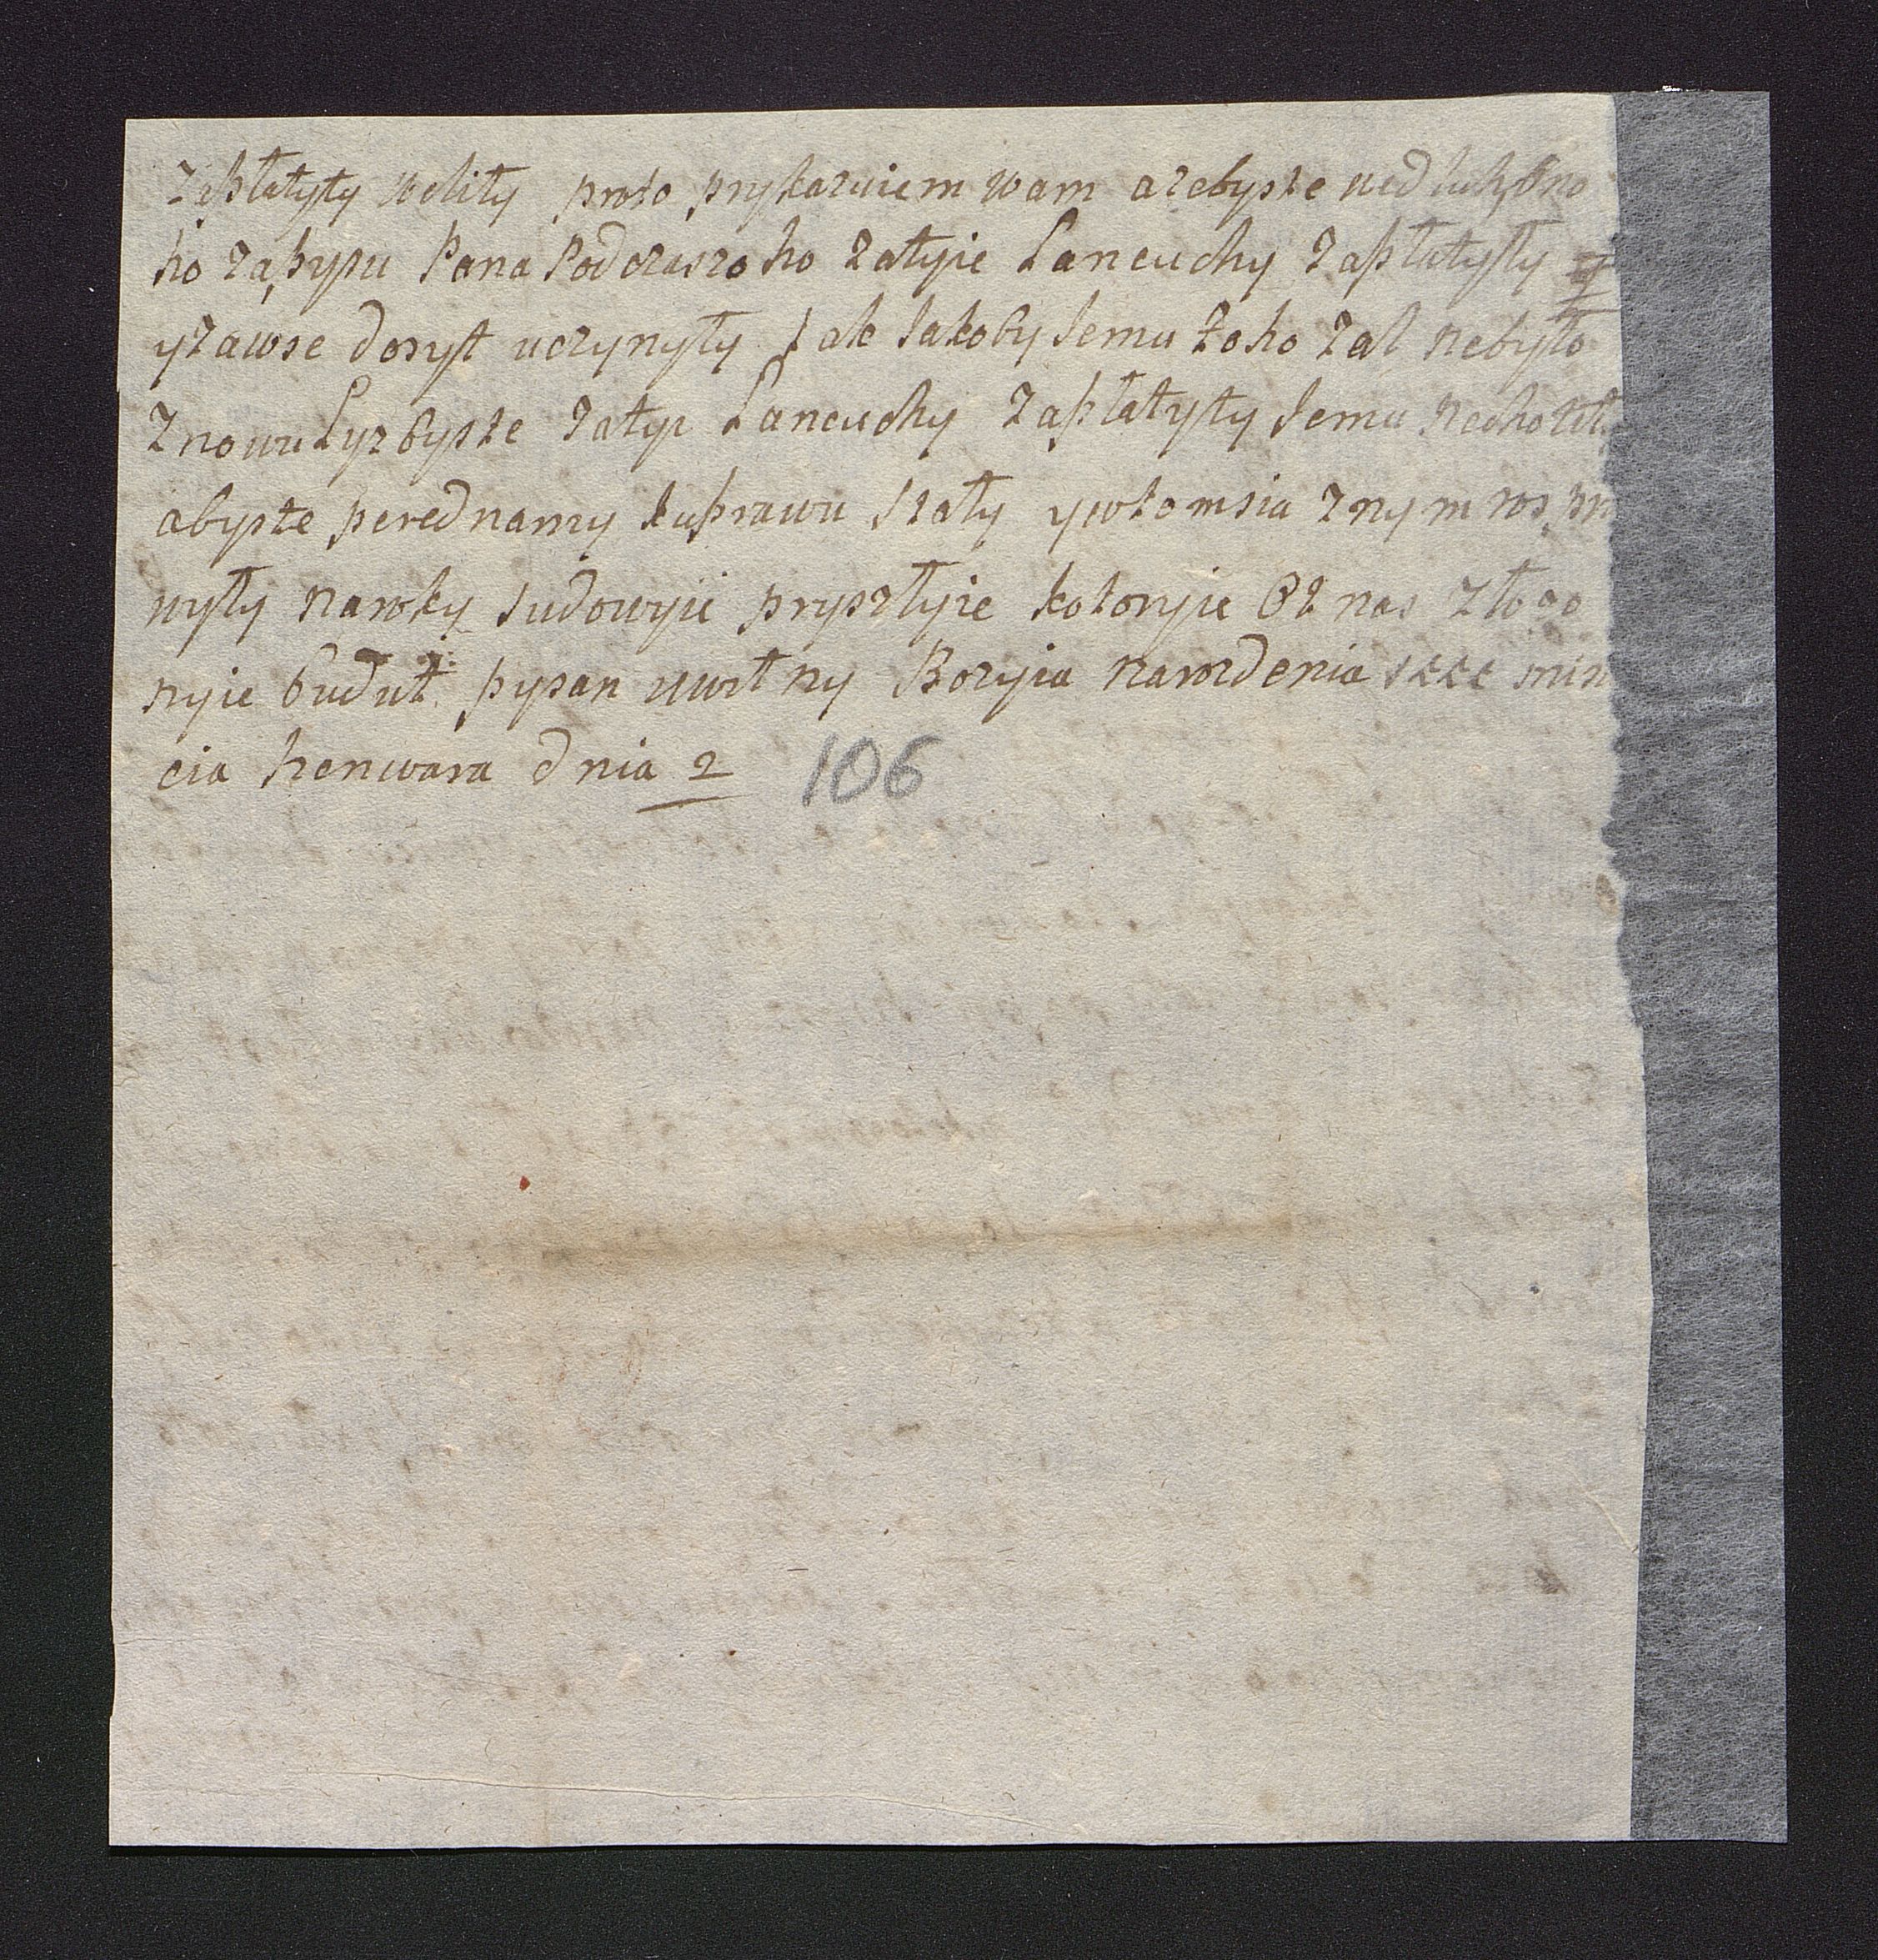 Zapłatyty welity proto prykazuiem wam azebyste wedluh
ho zapysu Pana Podczaszoho zatyie Lancuchy Zapłatyły
yzawse dosyt uczynyły Jak Jakoby Jemu toho Zal nebyło
Znowu Lyzbyste zatyi Lancuchy Zapłatyły Jemu nechotily
abyste perednamy kuprawu stały ywtomsia Znym ros pra
wyły naroky sudowyii pryszłyie kotoryie Ot nas Złożo
nyie budut pysan uwilny Bozyia narozdenia
cia henwara dnia 2 106